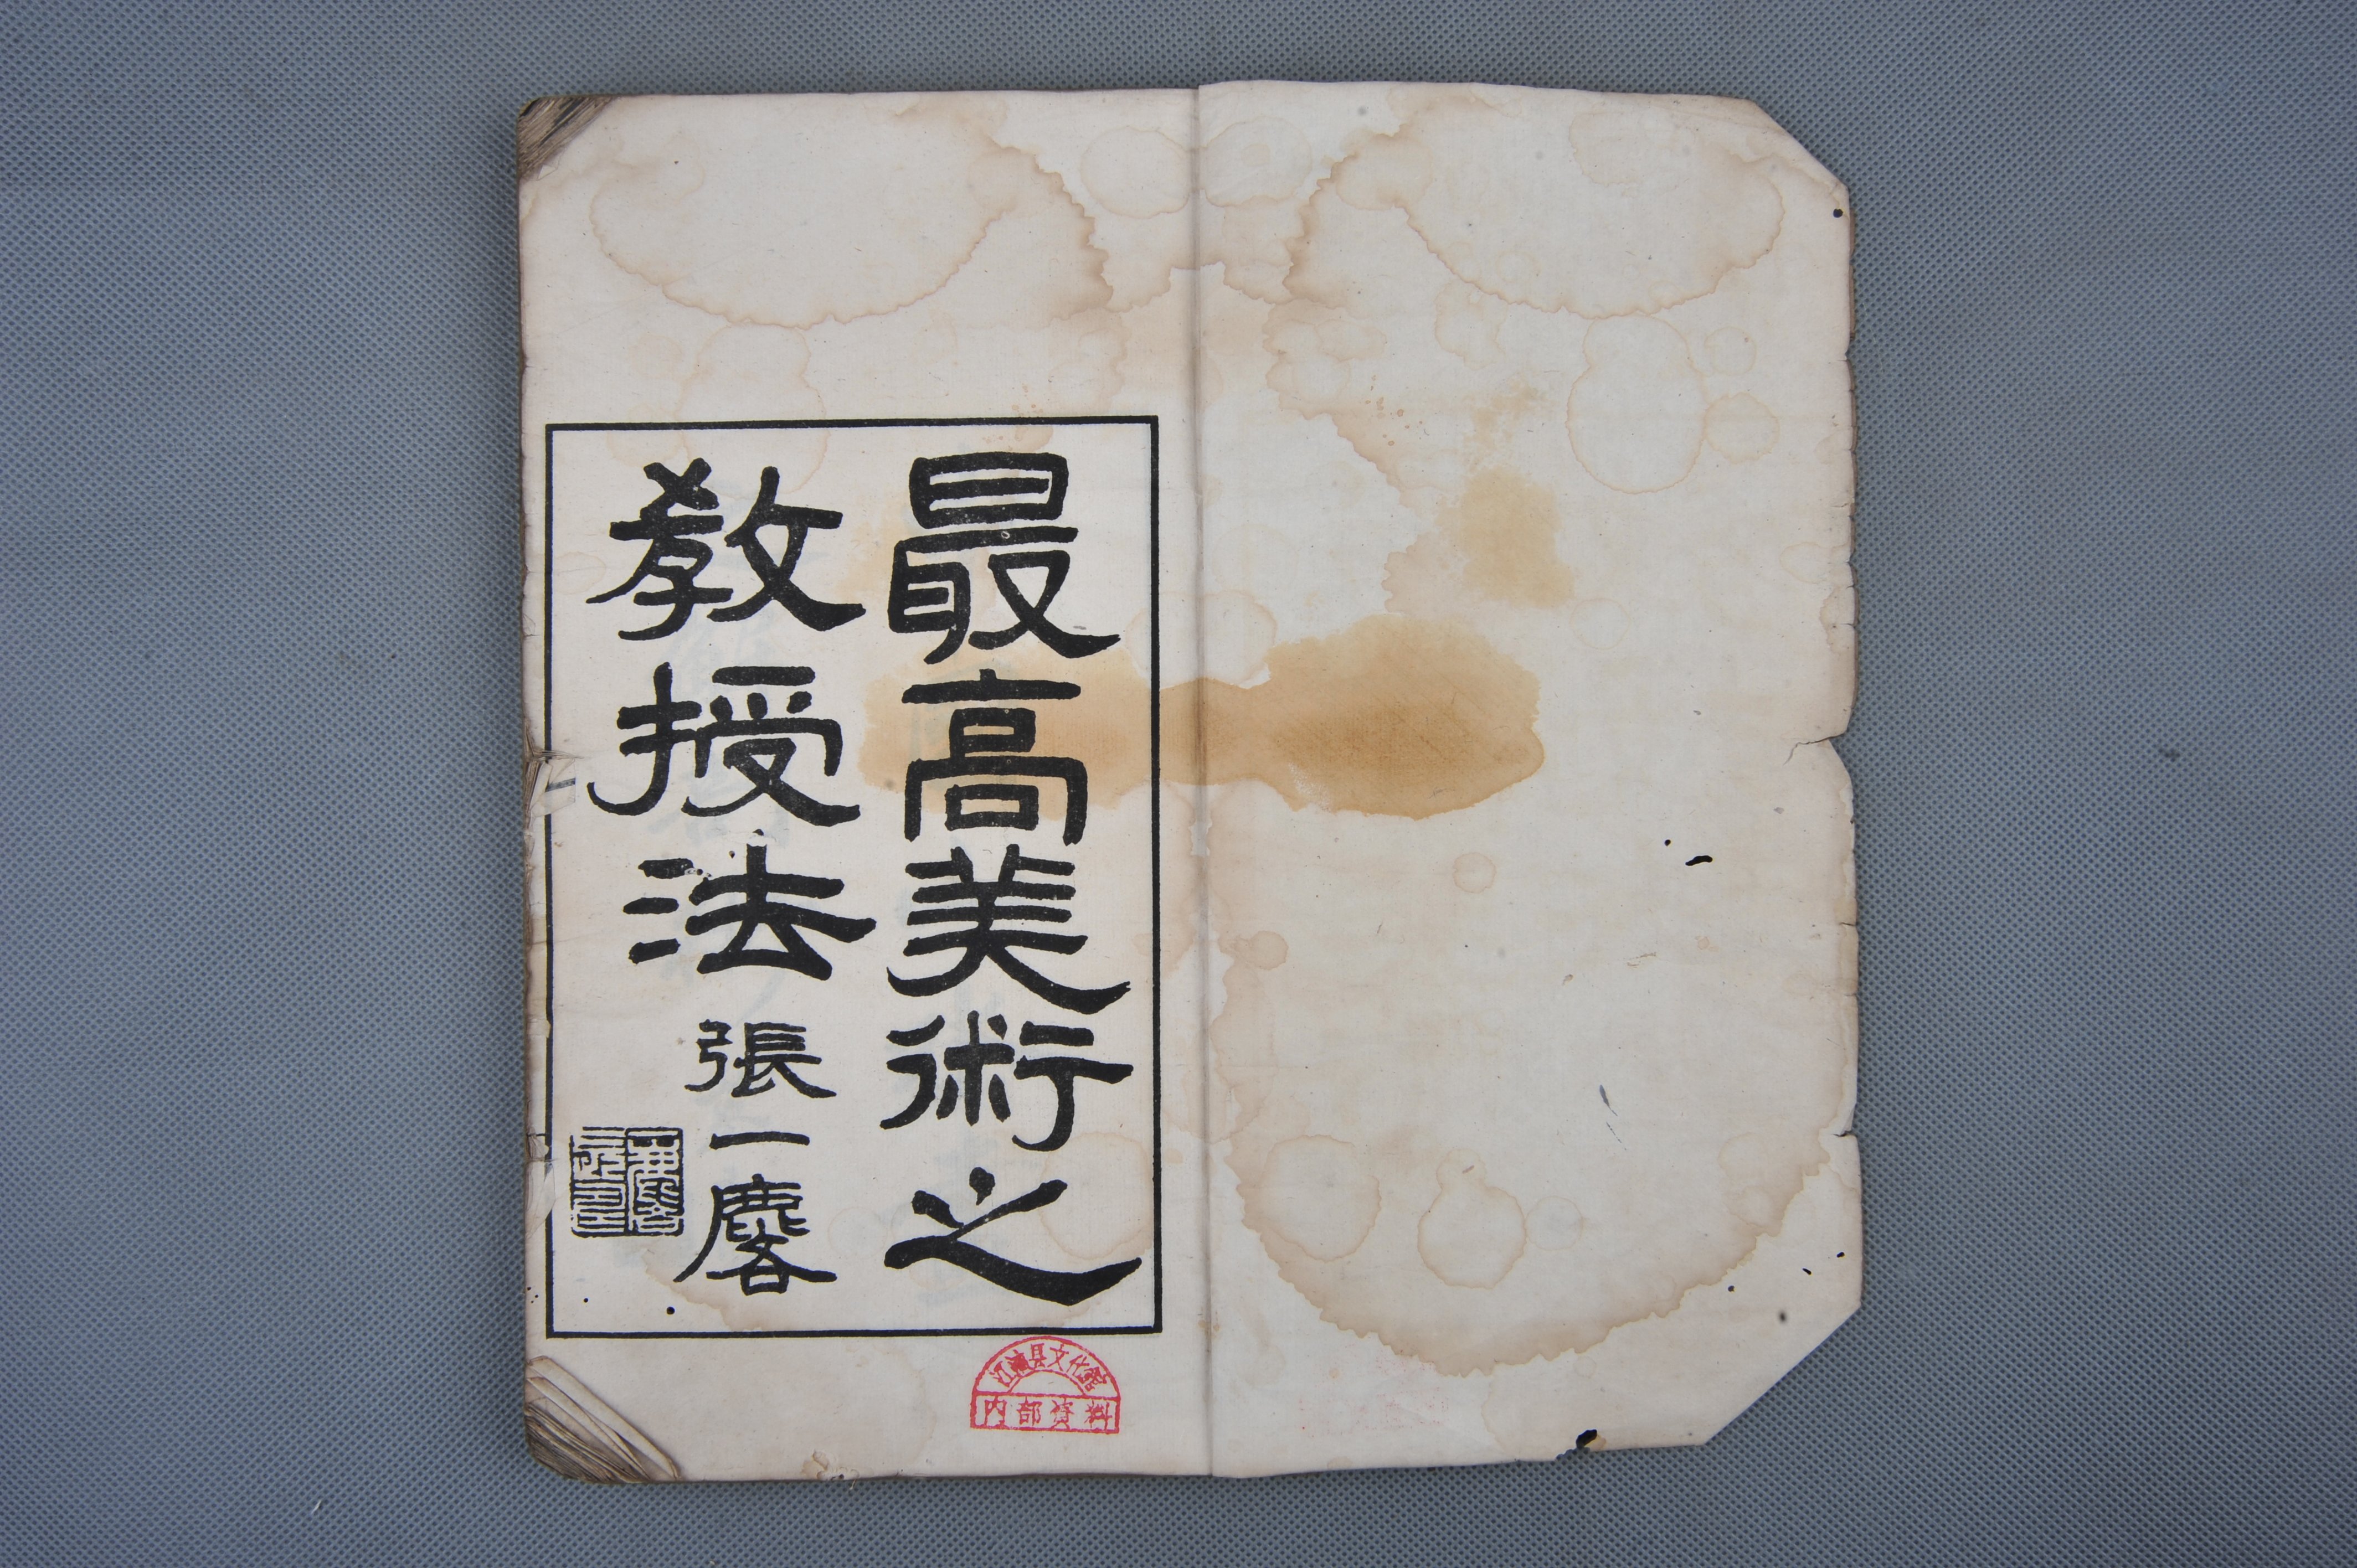 最高美術之
教授法 張一麐
江油县文化館
内部資料